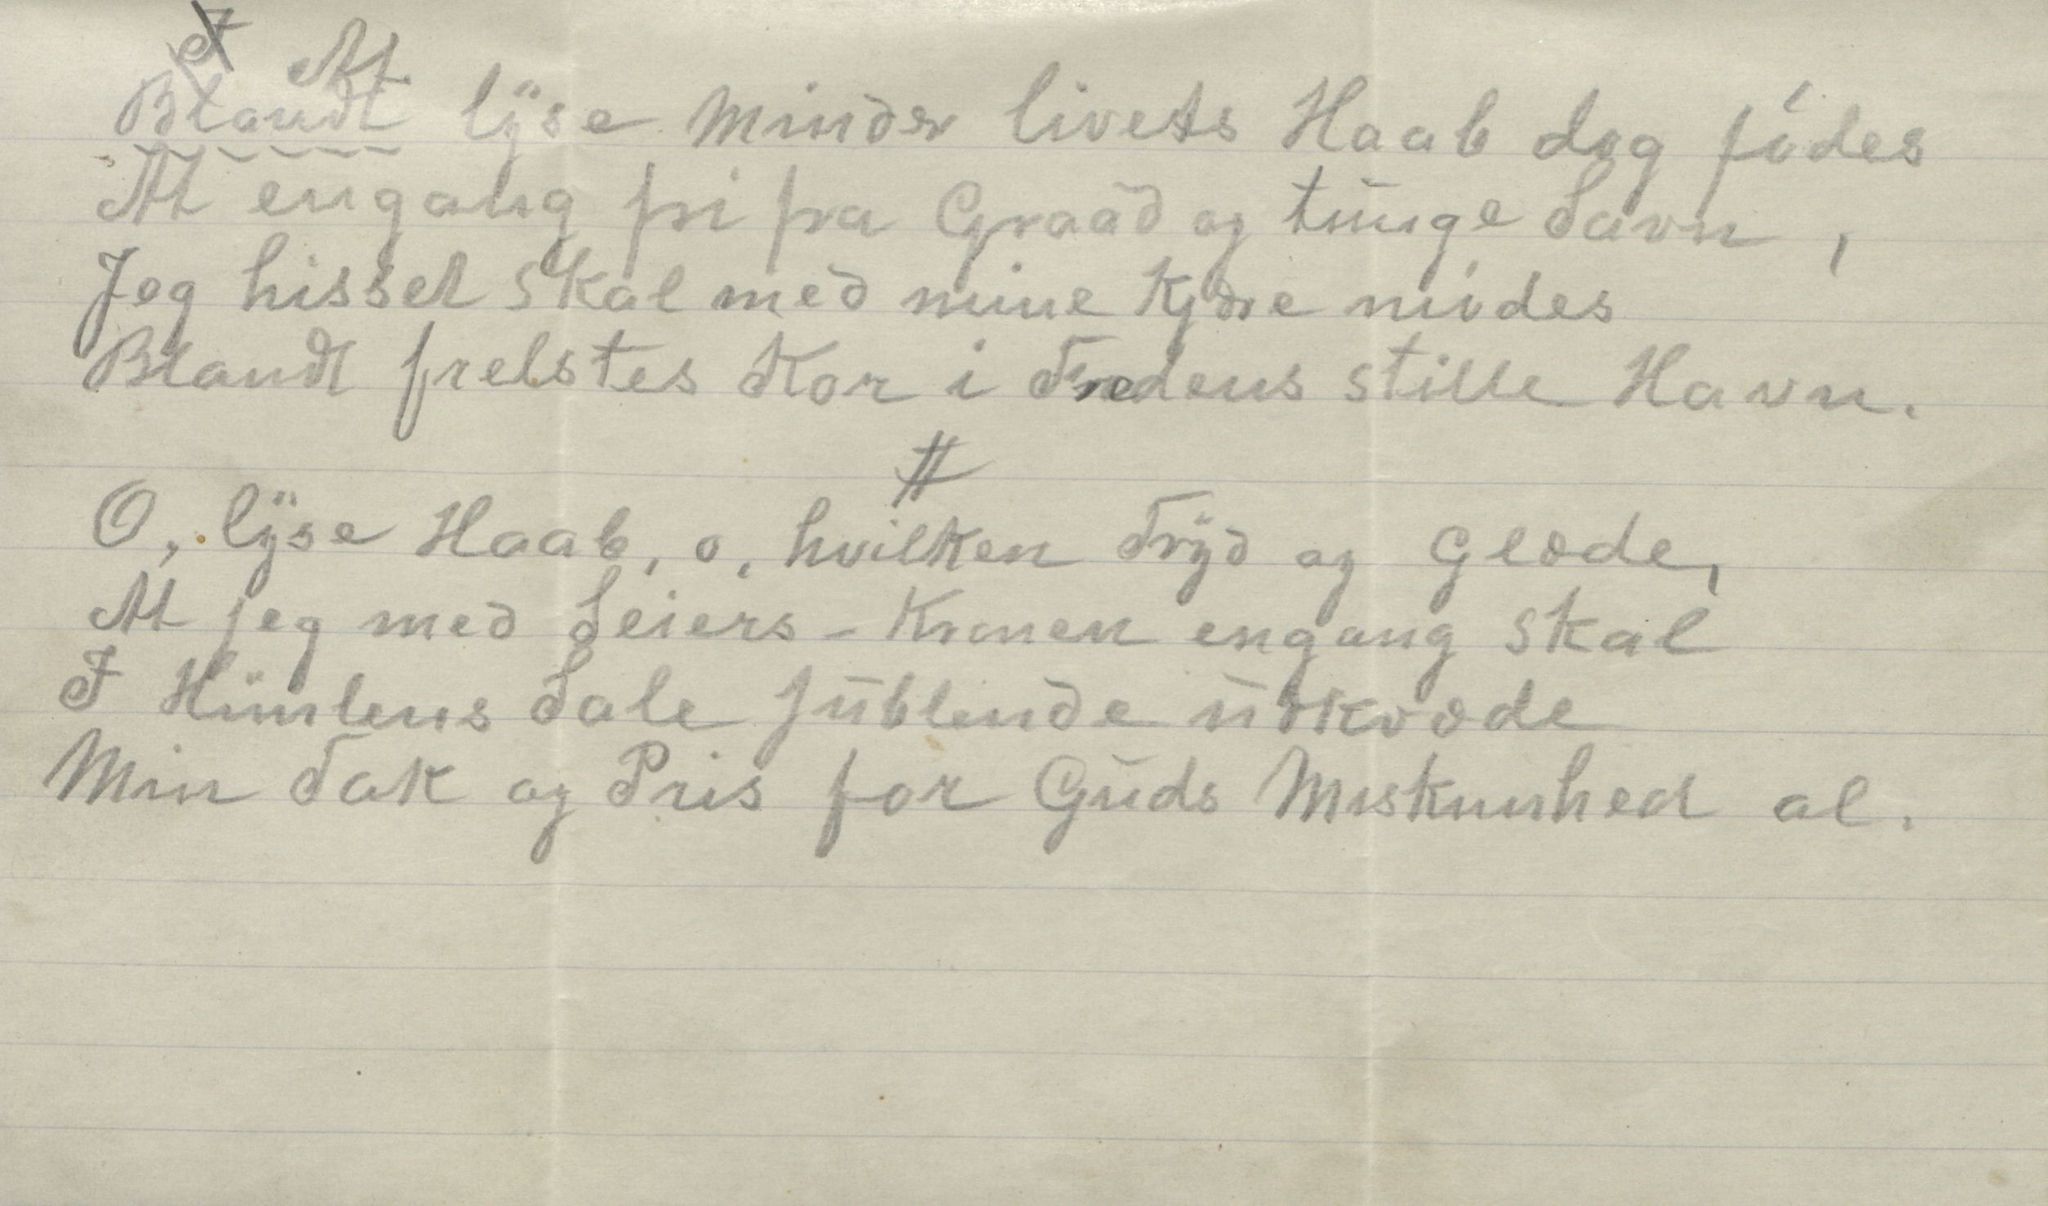 I At
Blandt lÿse Minder livets Haab dog fódes
At engang fri fra Graad og tunge Savn,
Jeg hisset skal med mine Kjære módes
Blandt frelstes Kor i Fredens stille Havn.
#
O, lÿse Haab, o, hvilken Frÿd og Glæde,
At jeg med Seiers-Kronen engang skal
I Himlens Sale jublende udkvæde
Min Tak og Pris for Guds Miskunhed al.